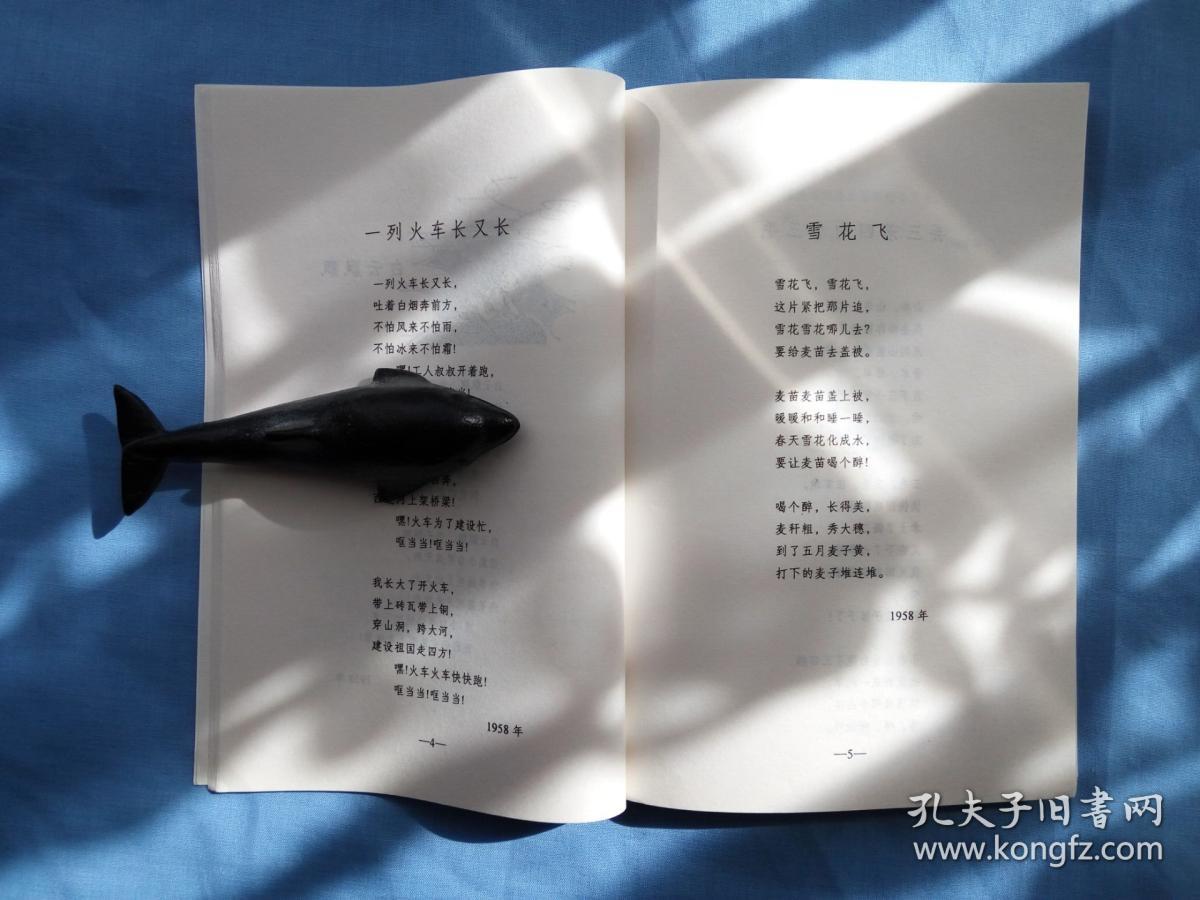 一列火车长又长
一列火车长又长，
吐着白烟奔前方，
不怕风来不怕雨，
不怕冰来不怕霜！
嘿！工人叔叔开着跑，
河上架桥梁！
嘿！火车为了建设忙，
哐当当！哐当当！
我长大了开火车，
带上砖瓦带上钢，
穿山洞，跨大河，
建设祖国走四方！
嘿！火车火车快快跑！
哐当当！哐当当！
1958年
—4—
雪花飞
雪花飞，雪花飞，
这片紧把那片追，
雪花雪花哪儿去？
要给麦苗去盖被。
麦苗麦苗盖上被，
暖暖和和睡一睡，
春天雪花化成水，
要让麦苗喝个醉！
喝个醉，长得美，
麦秆粗，秀大穗，
到了五月麦子黄，
打下的麦子堆连堆。
1958年
—5—
孔夫子旧书网
www.kongfz.com